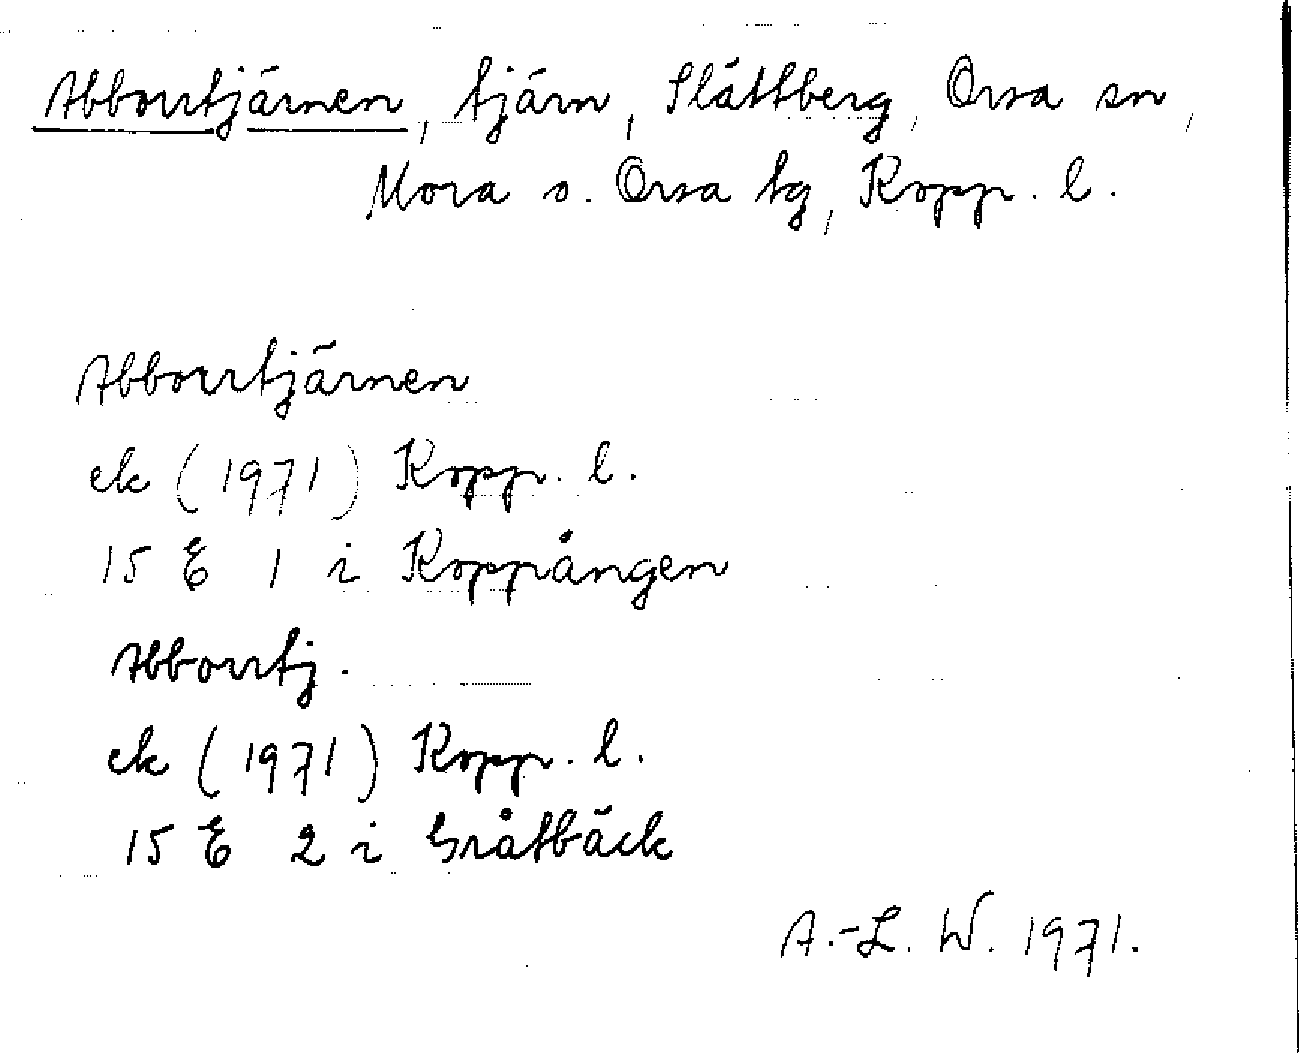 Abborrtjärnen, tjärn, Slättberg, Orsa sn,
Mora o. Orsa tg, Kopp. l.
Abborrtjärnen
ek (1971) Kopp. l.
15 E 1 i Koppången
Abborrtj.
ek (1971) Kopp. l.
15 E 2 i Gråtbäck
A.-L. W. 1971.